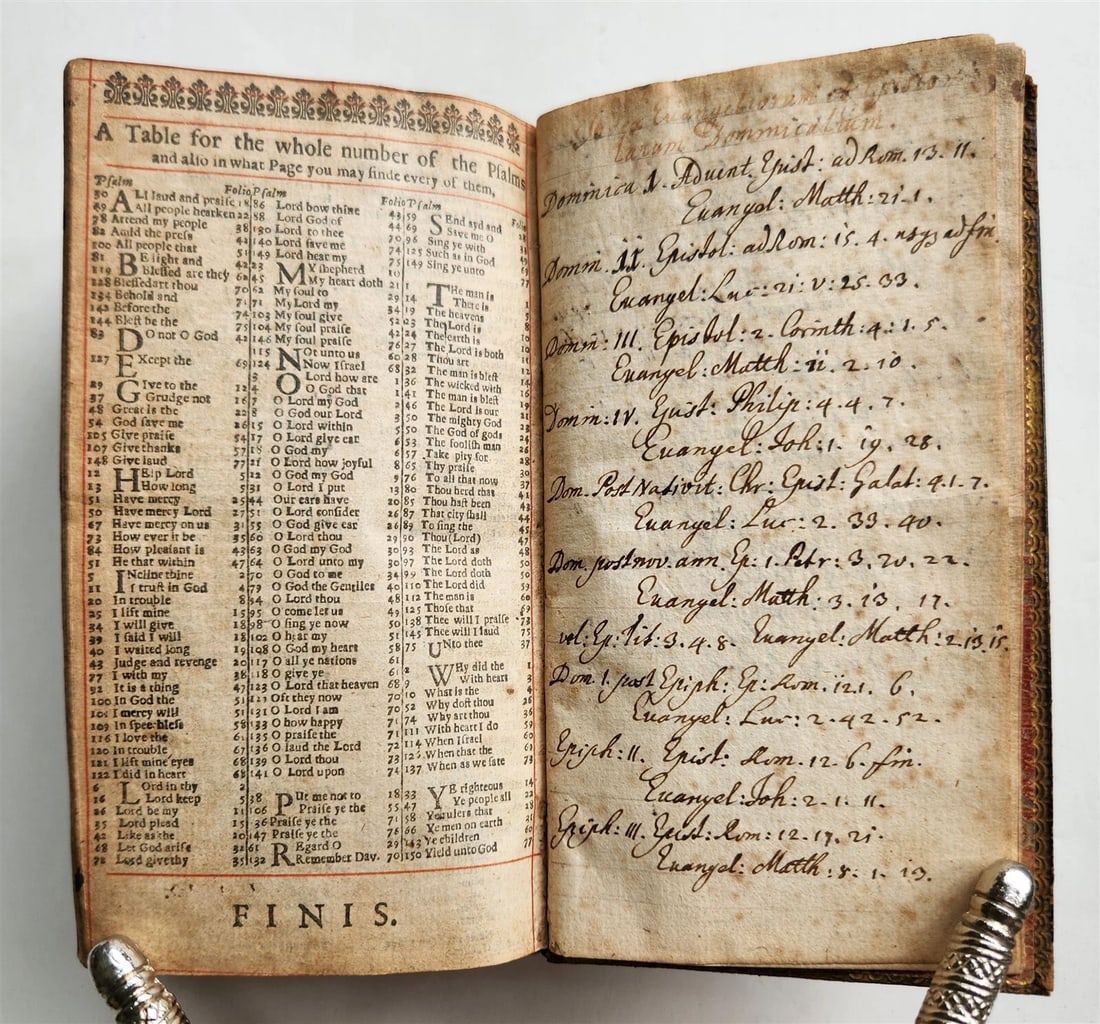 A Table for the whole number of the Psalms
and also in what Page you may finde every of them,
Psalm Folio
50 ALl laud and praise 18
49 All people hearken 22
78 Attend my people 38
82 Auld the press 41
100 All people that 51
81 BE light and 42
119 Blessed are they 62
128 Blessedart thou 70
134 Behold and 71
Before the 74
144 Blest be the 75
83 DO not O God 41
127 EXcept the 69
29 GIve to the 12
37 Grudge not 16
48 Great is the 22
54 God save me 26
105 Give praise 54
107 Give thanks 57
148 Give laud 77
12 HElp Lord 5
13 How long 5
51 Have mercy 25
50 Have mercy Lord 27
67 Have mercy on us 31
73 How ever it be 35
84 How pleasant is 43
51 He that within 47
5 INcline thine 2
11 I trust in God 4
20 In trouble 8
25 I lift mine 15
34 I will give 18
39 I said I will 18
40 I waited long 19
43 Judge and revenge 20
77 I with my 38
92 It is a thing 47
100 In God the 51
101 I mercy will 51
109 In speechless 58
116 I love the 61
120 In trouble 67
121 I lift mine eyes 68
122 I did in heart 68
6 LOrd in thy 2
16 Lord keep 5
26 Lord be my 11
35 Lord plead 15
42 Like as the 20
68 Let God arise 32
72 Lord give thy 35
Psalm Folio
86 Lord bow thine 43
88 Lord God of 44
130 Lord to thee 70
140 Lord save me 74
149 Lord hear my 75
23 MY shepherd 10
45 My heart doth 21
62 My soul to 29
71 My Lord my 34
103 My soul give 52
104 My soul praise
146 My soul praise 76
115 NOt unto us 60
124 Now Israel 68
3 O Lord how are 1
4 O God that 1
7 O Lord my God 2
8 O God our Lord 3
15 O Lord within 5
17 O Lord give ear 6
18 O God my 6
21 O Lord how joyful 8
22 O God my God 9
31 O Lord I put 13
44 Our ears have 20
51 O Lord consider 26
55 O God give ear 26
60 O Lord thou 29
63 O God my God 30
64 O Lord unto my 30
70 O God to me 34
79 O God the Gentiles 40
94 O Lord thou 48
95 O come let us 49
98 O sing ye now 50
102 O hear my 51
108 O God my heart 58
117 O all ye nations 61
118 O give ye 61
123 O Lord that heaven 68
Oft they now 70
131 O Lord I am 70
133 O how happy 71
135 O praise the 71
136 O laud the Lord 72
139 O Lord thou 73
141 O Lord upon 74
38 PUt me not to 18
106 Praise ye the 55
136 Praise ye the 71
147 Praise ye the 76
61 REgard O 29
132 Remember Dav. 70
Psalm Folio
59 SEnd ayd and
69 Save me O
96 Sing ye with
125 Such as in God
149 Sing ye unto
1 THe man is 1
14 There is
19 The heavens
23 The Lord is
24 The earth is
27 The Lord is both
28 Thou art
32 The man is blest
36 The wicked with
41 The man is blest
46 The Lord is our
50 The mighty God
50 The God of gods
53 The foolish man
57 Take pity for
65 Thy praise
76 To all that now
80 Thou herd that
85 Thou hast been
87 That city shall
89 To sing the
90 Thou (Lord)
93 The Lord as 48
97 The Lord doth 50
99 The Lord doth 50
110 The Lord did 59
112 The man is 60
125 Those that 69
138 Thee will I praise 73
145 Thee will I laud 75
75 UNto thee 37
2 WHy did the 1
9 With heart 3
10 What is the 4
52 Why doth thou 26
74 Why art thou 36
111 With heart I do 59
114 When Israel 60
126 When that the 69
137 When as we sate 73
33 YE righteous 14
47 Ye people all 22
58 Ye rulers that 28
66 Ye men on earth 31
143 Ye children
150 Yield unto God 77
FINIS.
Evangeliorum et Epistolarum Dominicalium.
Dominica 1. Advent. Epist: ad Rom. 13. 11.
Euangel: Matth: 21. 1.
Domin. II. Epistol: ad Rom: 15. 4. usq; ad fin.
Euangel: Luc: 21: v: 25. 33.
Domin: III. Epistol: 2. Corinth: 4: 1. 5.
Euangel: Matth: 11. 2. 10.
Domin: IV. Epist: Philip: 4. 4. 7.
Euangel: Joh: 1. 19. 28.
Dom. Post Nativit: Chr: Epist: Galat: 4. 1. 7.
Euangel: Luc: 2. 33. 40.
Dom. post nov. ann. Ep: 1. Petr: 3. 20. 22.
Euangel: Matth: 3. 13. 17.
vel: Ep: Tit: 3. 4. 8. Euangel: Matth: 2. 13. 15.
Dom. 1. post Epiph: Ep: Rom. 12. 1. 6.
Euangel: Luc: 2. 42. 52.
Epiph: II. Epist: Rom. 12. 6. fin.
Euangel: Joh: 2. 1. 11.
Epiph: III. Epist: Rom: 12. 17. 21.
Euangel: Matth: 8. 1. 13.